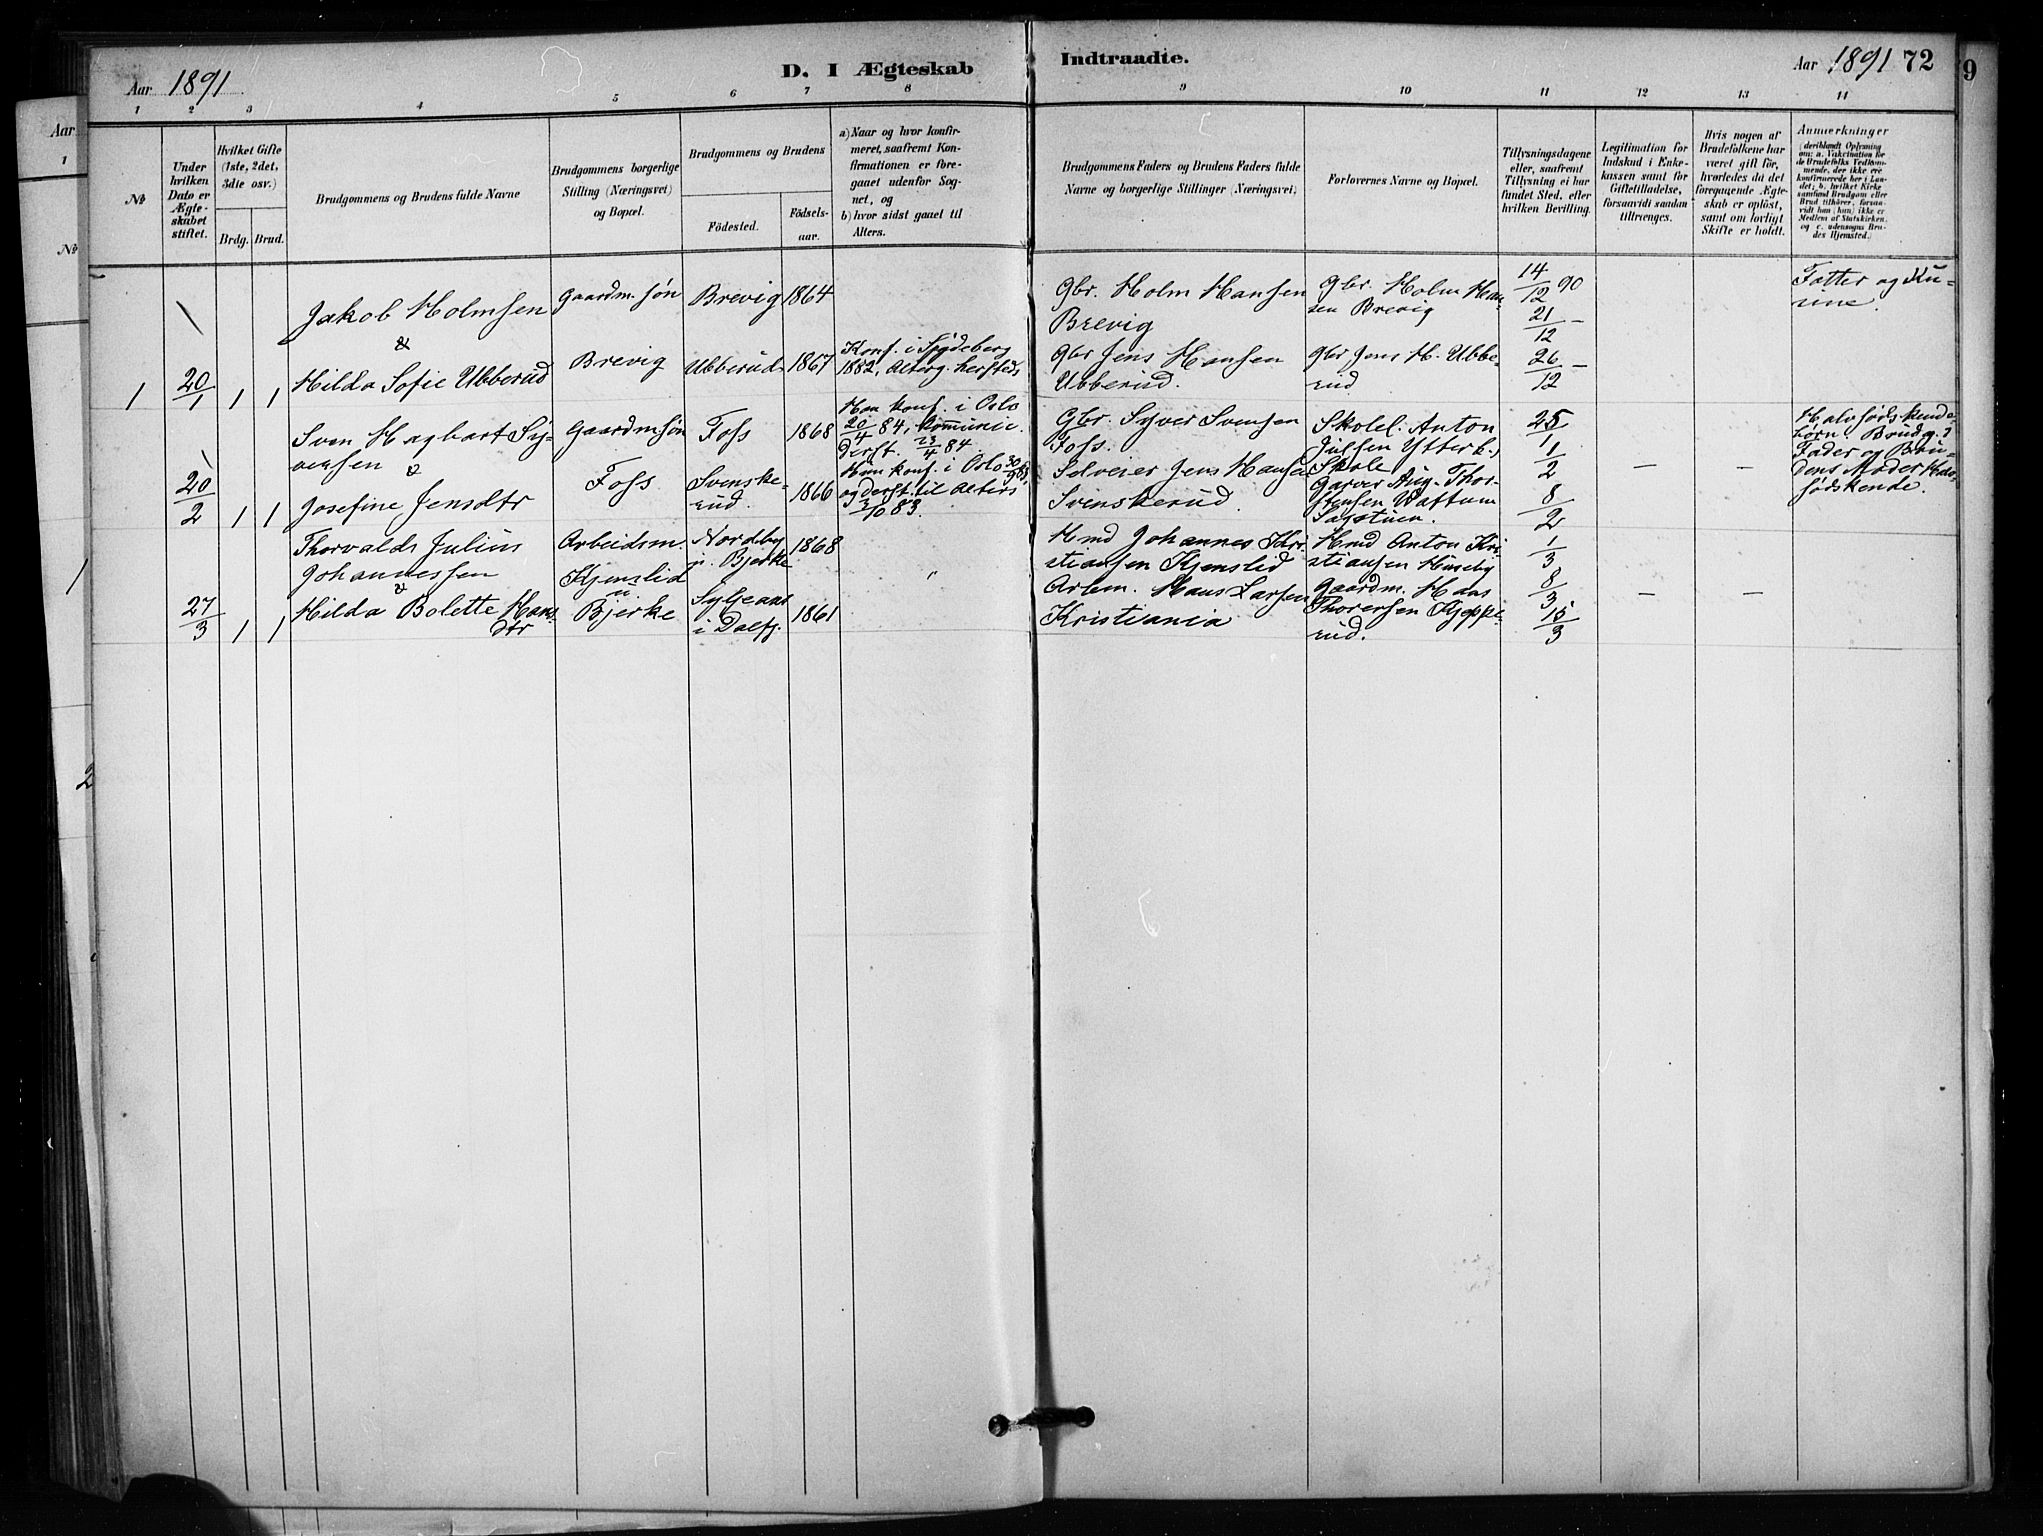 Aar 1891
D. I Ægteskab
Indtraadte.
Aar 1891 72
9
Aar
1
№
1
2
1 2 3 4 5 6 7 8 9 10 11 12 13 14
№
Under
hvilken
Dato er
Ægte-
skabet
stiftet.
Hvilket Gifte
(1ste, 2det,
3die osv.)
Brdg. Brud.
Brudgommens og Brudens fulde Navne
Brudgommens borgerlige
Stilling (Næringsvei)
og Bopæl.
Brudgommens og Brudens
Fødested.
Fødsels-
aar.
a) Naar og hvor konfir-
meret, saafremt Kon-
firmationen er fore-
gaaet udenfor Sog-
net, og
b) hvor sidst gaaet til
Alters.
Brudgommens Faders og Brudens Faders fulde
Navne og borgerlige Stillinger (Næringsvei).
Forlovernes Navne og Bopæl.
Tillysningsdagene
eller, saafremt
Tillysning ei har
fundet Sted, efter
hvilken Bevilling.
Legitimation for
Indskud i Enke-
kassen samt for
Giftetilladelse,
forsaavidt saadan
tiltrænges.
Hvis nogen af
Brudefolkene har
været gift før,
hvorledes da det
foregaaende Ægte-
skab er opløst,
samt om lovligt
Skifte er holdt.
Anmerkninger
(deriblandt Oplysning
om: a. Vakcination for
de Brudefolks Vedkom-
mende, der ikke ere
konfirmerede her i Lan-
det; b. hvilket Kirke
samfund Brudgom eller
Brud tilhører, forsaa-
vidt han (hun) ikke er
Medlem af Statskirken,
og c. udensogns Bru-
des Hjemsted.)
1
20/1
1 1
Jakob Holmsen
&
Hilda Sofie Ubberud
Gaardm. søn
Brevig
Brevig 1864
Ubberud 1867
Konf. i Spydeberg
1882, Alterg. hersteds
Gbr. Holm Hansen
Brevig
Gbr Jens Hansen
Ubberud.
Gbr. Holm Han-
sen Brevig
Gbr Jens H. Ubbe-
rud
14/12 90
21/12 –
26/12 –
Fætter og Ku-
sine.
20/2
1 1
Sven Hagbart Sy-
versen &
Josefine Jensdtr
Gaardmsøn
Foss
Foss 1868
Svenske-
rud. 1866
Han konf. i Oslo
20/4 84, kommunic.
derst. 23/4 84
Hun konf. i Oslo 30/9 83,
og derst. til Alters
3/10 83.
Gbr. Syver Svensen
Foss.
Selveier Jens Hansen
Svenskerud.
Skolel. Anton
Julsen Ytterk.
Skole
Garver Aug. Thor-
stensen Vattum
Sagstuen.
25/1
1/2
8/2
–
–
Halvsødskende-
børn. Brudg.s
Fader og Bru-
dens Moder Halv-
sødskende.
27/3
1 1
Thorvald Julius
Johannessen
&
Hilda Bolette Hans-
dtr
Arbeidsm.
Kjenslid
u.
Bjerke
Nordby
u. Bjerke 1868
i Dalsf. 1861
"
Hmd Johannes Kri-
stiansen Kjenslid
Arbm. Hans Larsen
Kristiania
Hmd Anton Kri-
stiansen Huseby
Gaardm. Hans
Thoresen Kjeppe-
rud.
1/3
8/3
15/3
–
–